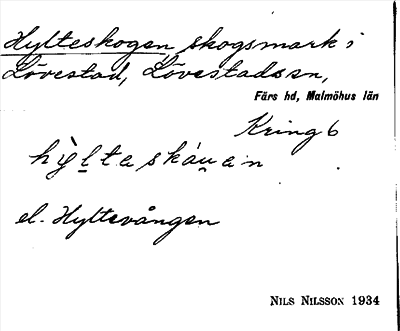 Hylteskogen skogsmark i
Lövestad, Lövestads sn,
Färs hd, Malmöhus län
Kring 6
el. Hyltevången
NILS NILSSON 1934